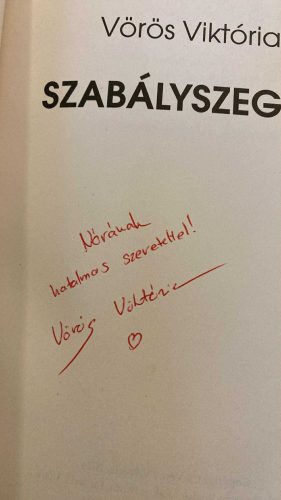 Vörös Viktória
SZABÁLYSZEG
Nórának
hatalmas szeretettel!
Vörös Viktória